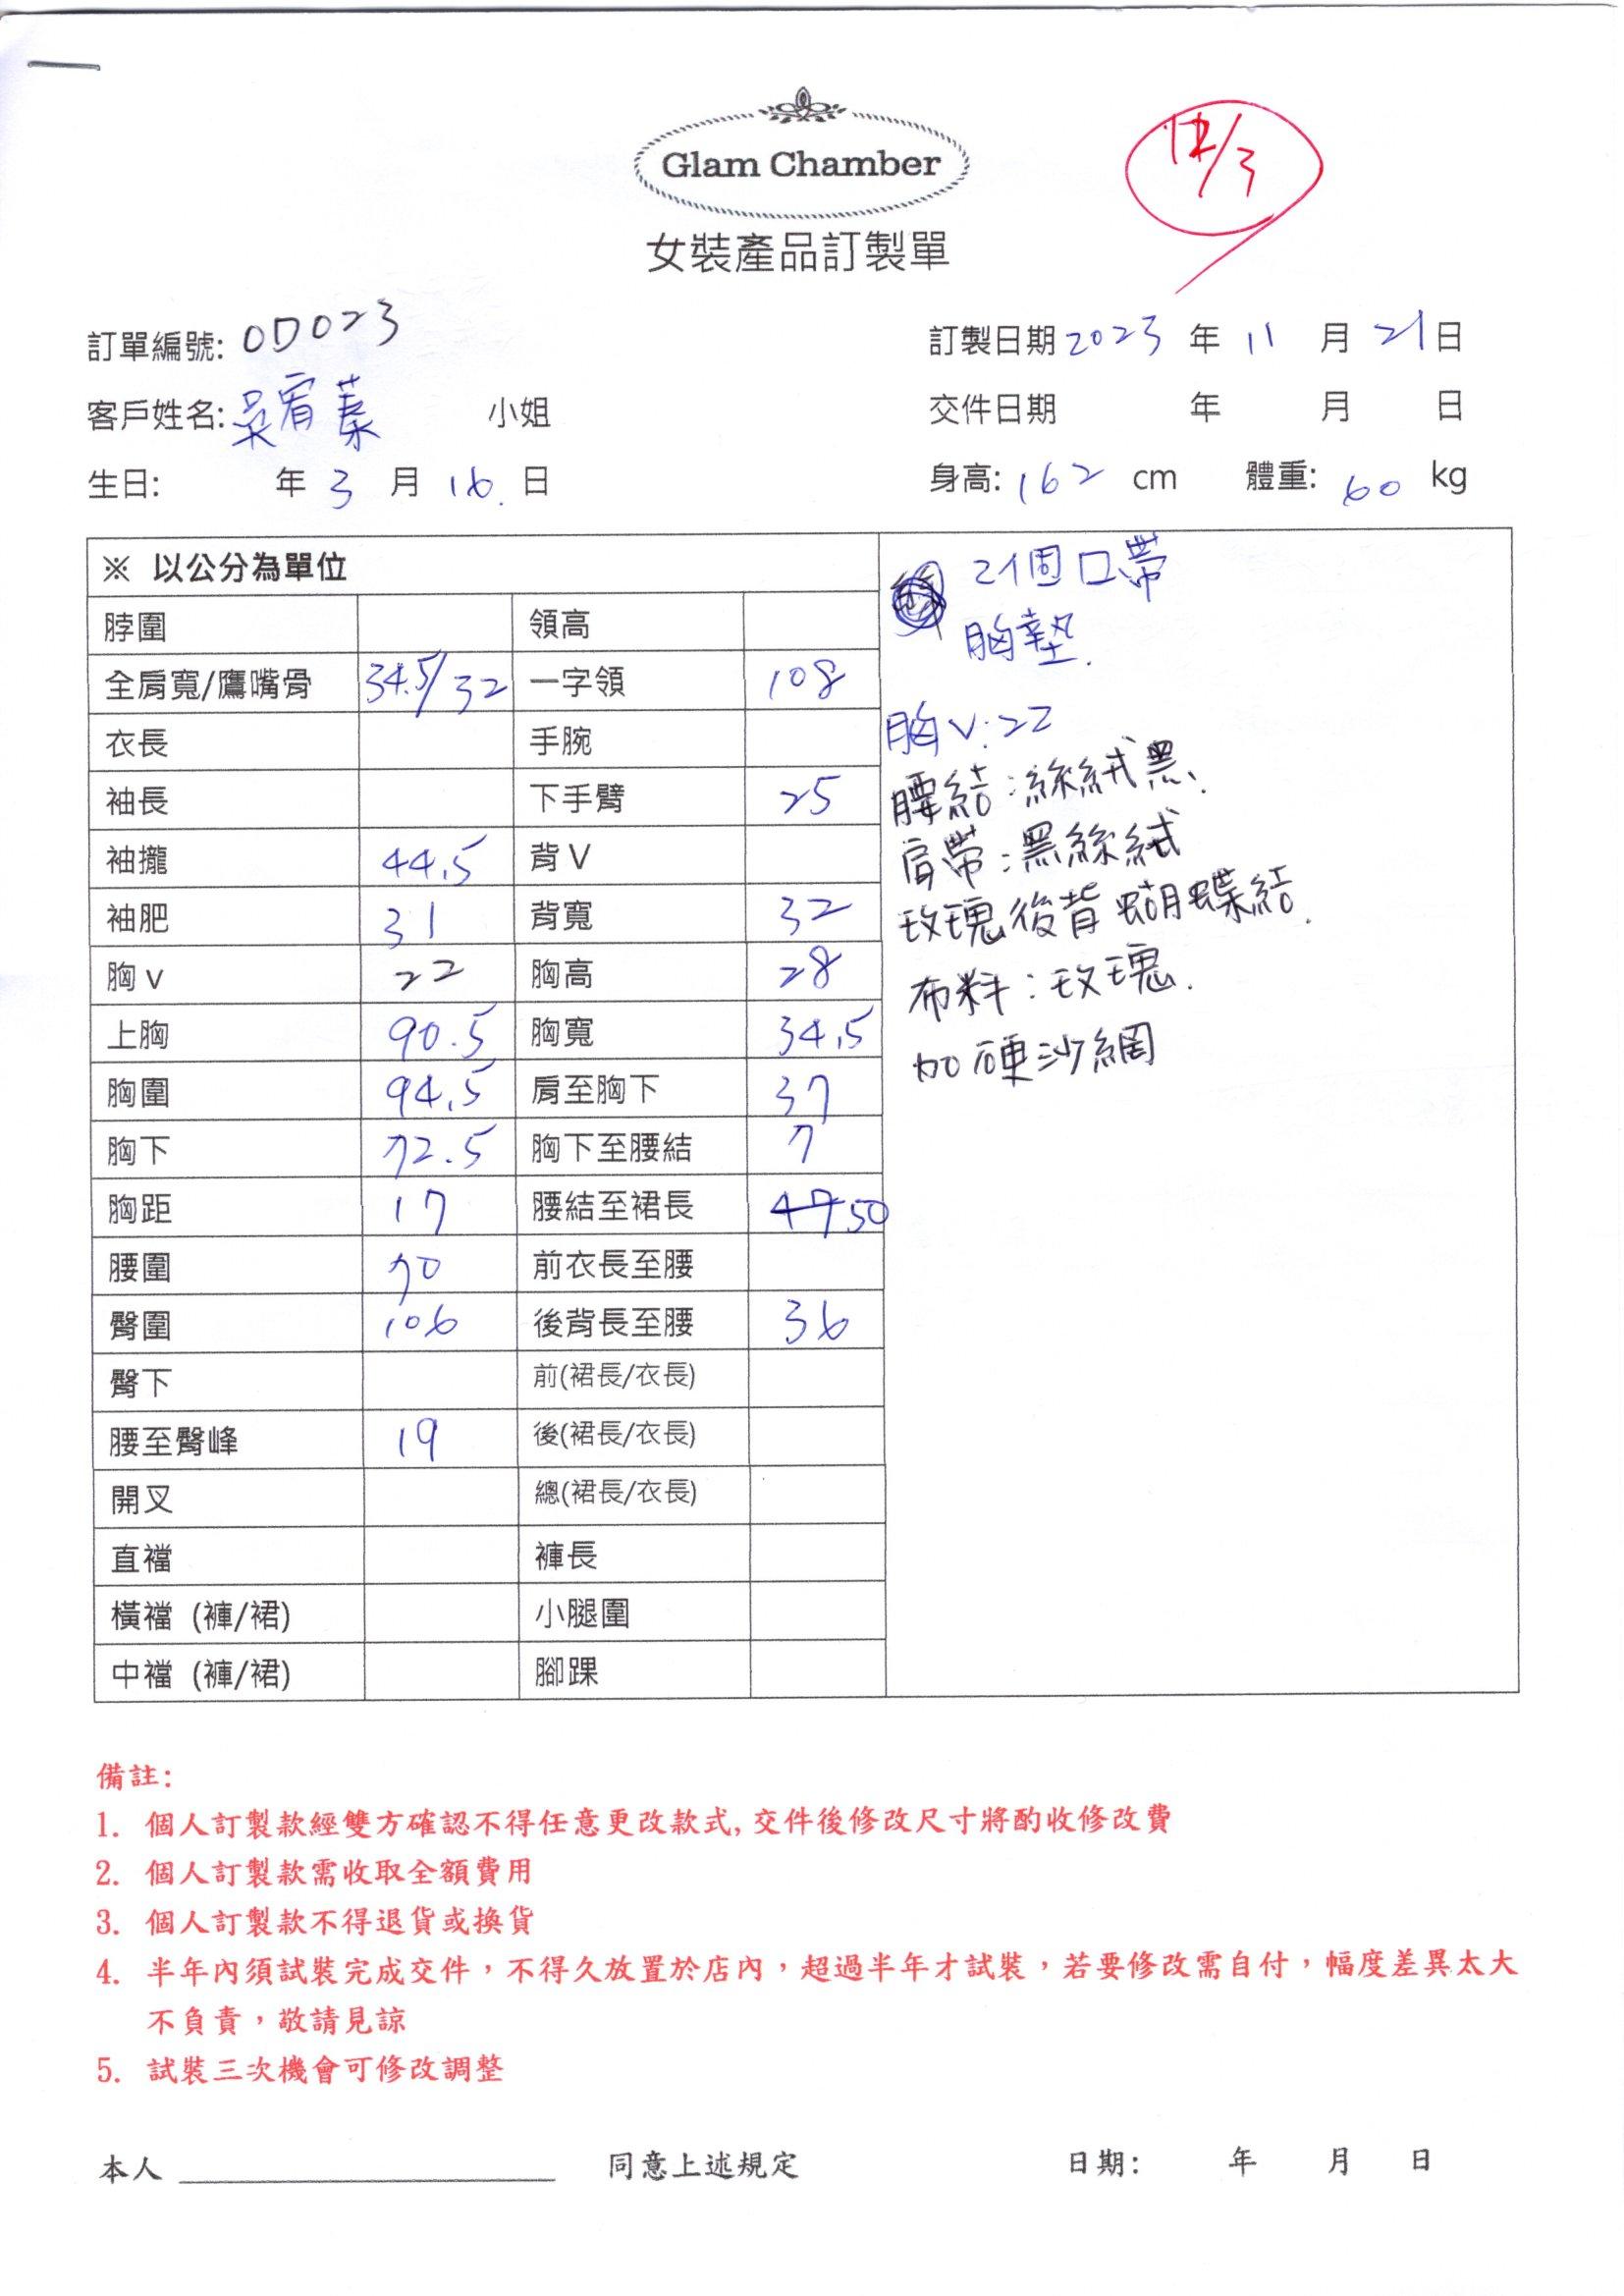 Glam Chamber
12/3
女裝產品訂製單
訂單編號: OD023 訂製日期 2023 年 11 月 21 日
客戶姓名: 吳宥蓁 小姐 交件日期 年 月 日
生日: 年 3 月 16. 日 身高: 162 cm 體重: 60 kg
※ 以公分為單位
脖圍 領高
全肩寬/鷹嘴骨 34.5/32 一字領 108
衣長 手腕
袖長 下手臂 25
袖攏 44.5 背V
袖肥 31 背寬 32
胸v 22 胸高 28
上胸 90.5 胸寬 34.5
胸圍 94.5 肩至胸下 37
胸下 72.5 胸下至腰結 7
胸距 17 腰結至裙長 47 50
腰圍 70 前衣長至腰
臀圍 106 後背長至腰 36
臀下 前(裙長/衣長)
腰至臀峰 19 後(裙長/衣長)
開叉 總(裙長/衣長)
直襠 褲長
橫襠 (褲/裙) 小腿圍
中襠 (褲/裙) 腳踝
2個口帶
胸墊.
胸V:22
腰結:絲絨黑.
肩帶:黑絲絨
玫瑰後背蝴蝶結.
布料:玫瑰.
加硬沙網
備註:
1. 個人訂製款經雙方確認不得任意更改款式,交件後修改尺寸將酌收修改費
2. 個人訂製款需收取全額費用
3. 個人訂製款不得退貨或換貨
4. 半年內須試裝完成交件，不得久放置於店內，超過半年才試裝，若要修改需自付，幅度差異太大
不負責，敬請見諒
5. 試裝三次機會可修改調整
本人 同意上述規定 日期: 年 月 日